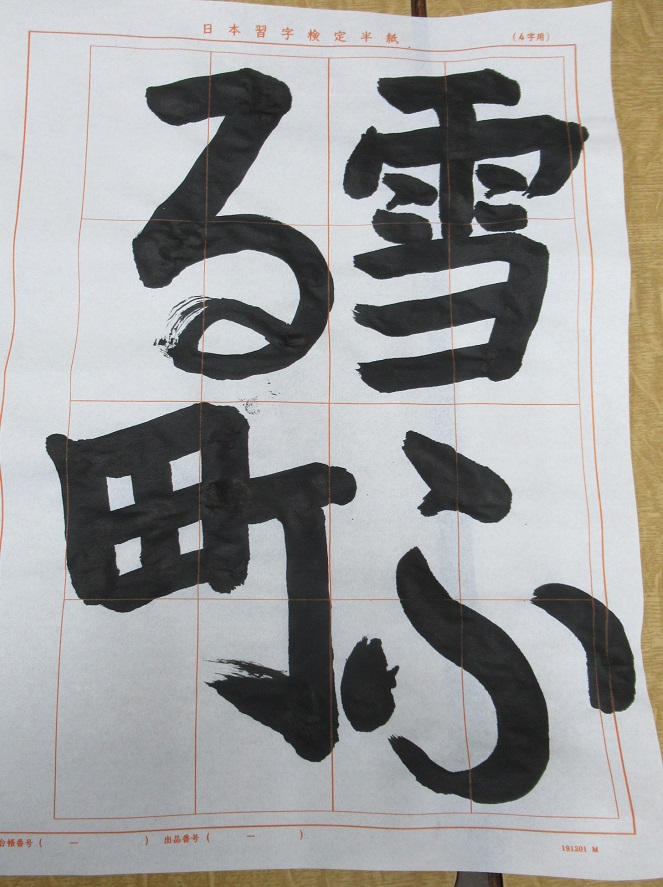 日本習字検定半紙
(4字用)
雪ふ
る町
台帳番号 ( ー )
出品番号 ( ー )
191201 M